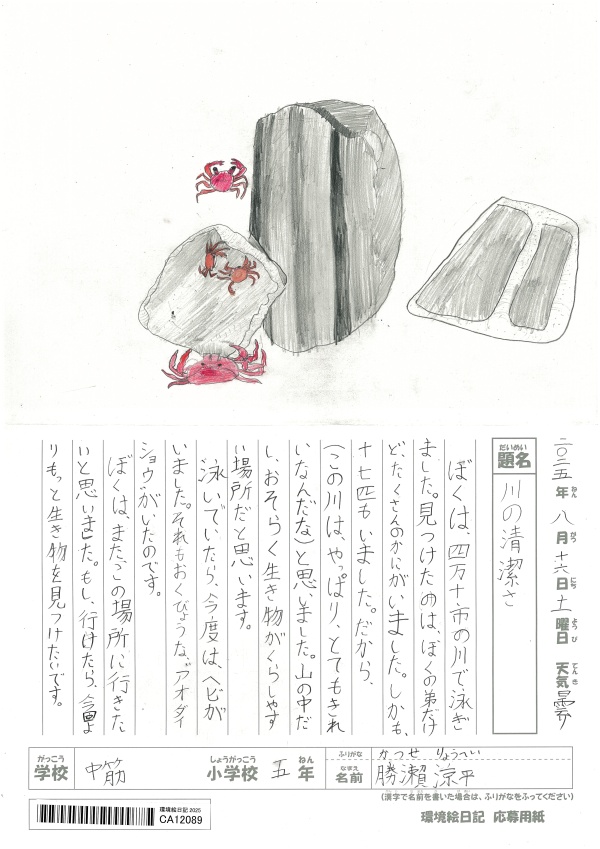 二〇二五年八月十六日土曜日 天気曇り
ねん がつ にち ようび てんき
だいめい
題名 川の清潔さ
ぼくは、四万十市の川で泳ぎ
ました。見つけたのは、ぼくの弟だけ
ど、たくさんのかにがいました。しかも、
十七匹もいました。だから、
(この川は、やっぱり、とてもきれ
いなんだな)と思いました。山の中だ
し、おそらく生き物がくらしやす
い場所だと思います。
泳いでいたら、今度は、ヘビが
いました。それもおくびょうな、アオダイ
ショウがいたのです。
ぼくは、またこの場所に行きた
いと思いました。もし、行けたら、今回よ
りもっと生き物を見つけたいです。
がっこう しょうがっこう ねん
学校 中筋 小学校 五年
ふりがな かつせ りょうへい
なまえ
名前 勝瀬 涼平
(漢字で名前を書いた場合は、ふりがなをふってください)
環境絵日記 応募用紙
環境絵日記 2025
CA12089